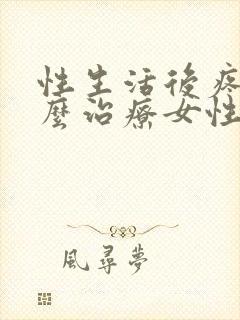 性生活後疼
麼治療女性
風尋夢